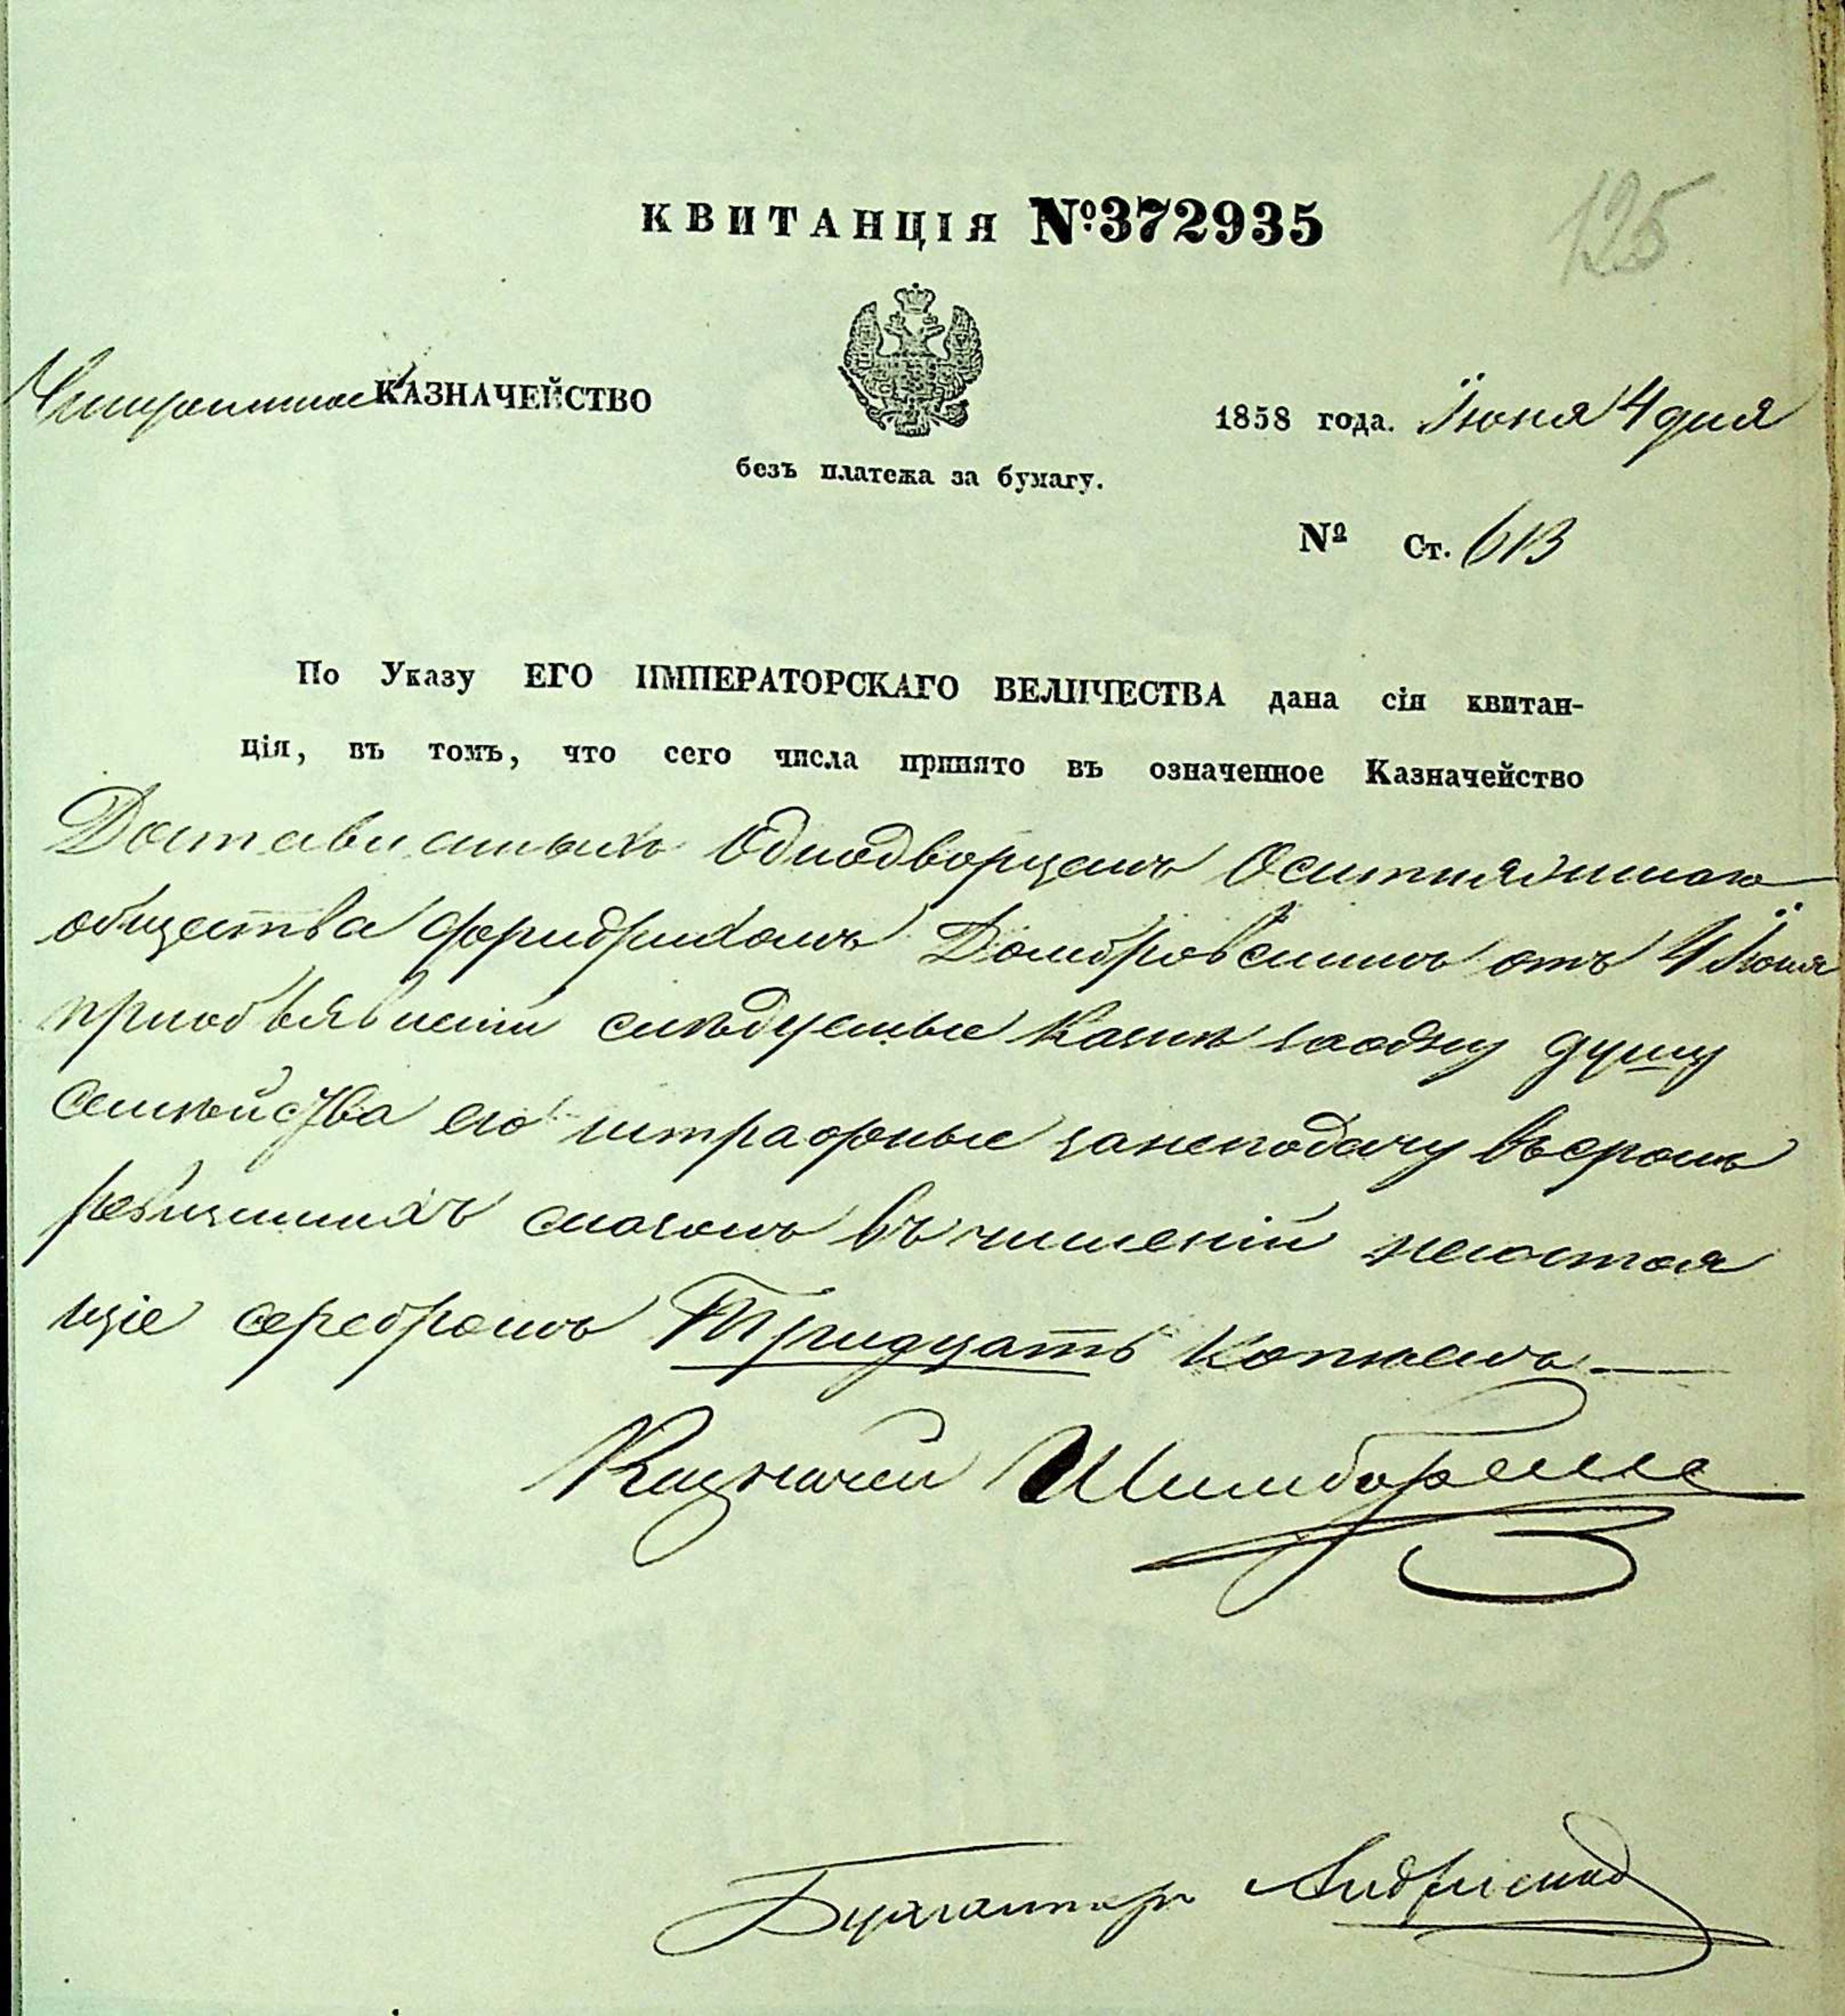 КВИТАНЦІЯ №372935
125
КАЗНАЧЕЙСТВО
1858 года. Іюня 4 дня
безъ платежа за бумагу.
№ Ст. 613
По Указу ЕГО ИМПЕРАТОРСКАГО ВЕЛИЧЕСТВА дана сія квитан-
ція, въ томъ, что сего числа принято въ означенное Казначейство
Однодворцемъ
общества Фридрихомъ Домбровскимъ отъ 4 Іюня
при объявленіи слѣдуемые Казнѣ за одну душу
Семѣйства его штрафные за неподачу въ срокъ
ревизскихъ сказокъ въ
серебромъ Тридцать Копѣекъ
Казначей
Бухгалтеръ